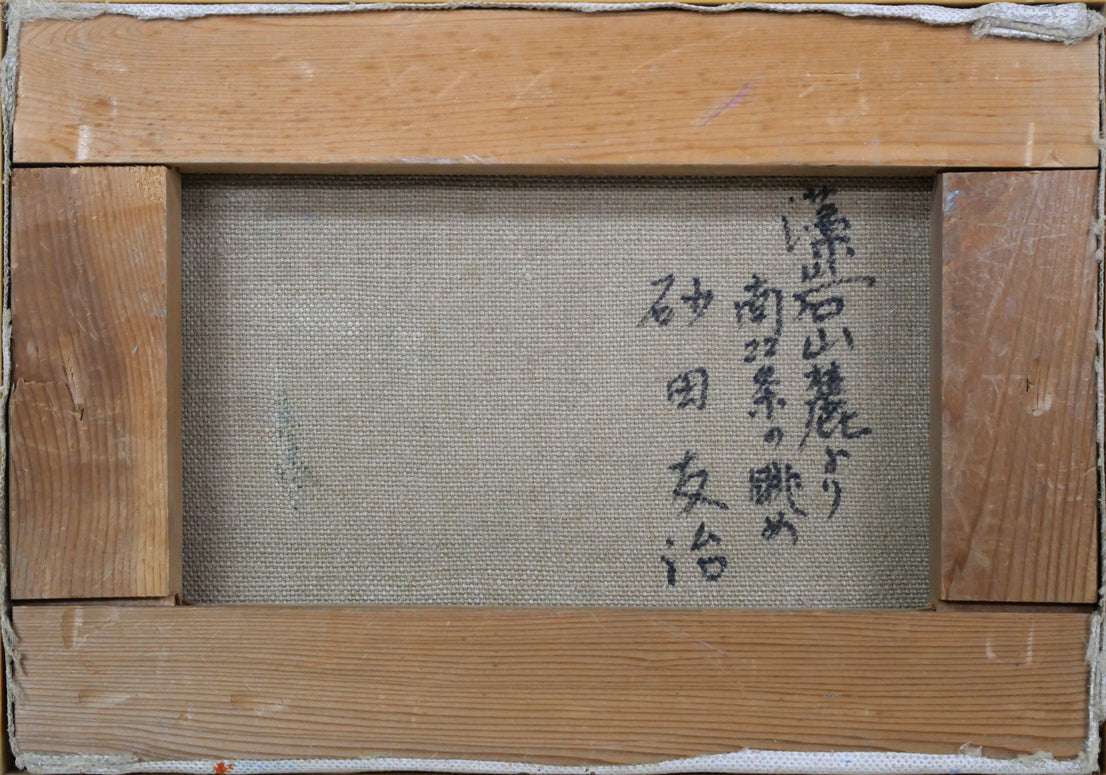 藻岩山麓より
南22条の眺め
砂田友治